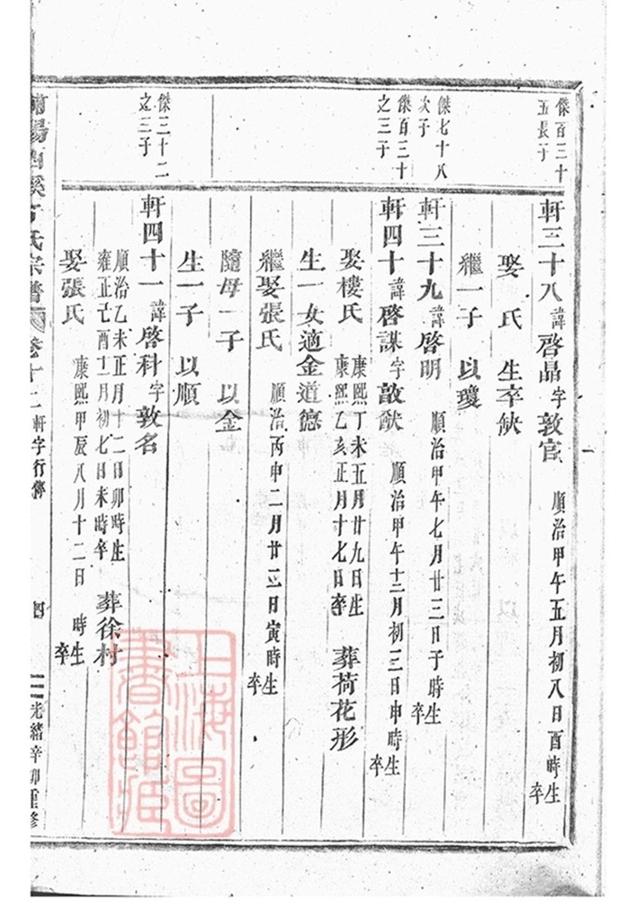 傑百三十
五長子
軒三十八諱啓晶字敦官 順治甲午五月初八日酉時生
卒
娶 氏 生卒缺
繼一子 以瓊
傑七十八
次子
軒三十九諱啓明 順治甲午七月廿三日子時生
卒
傑百三十
之三子
軒四十諱啓謀字敦猷 順治甲午十二月初三日申時生
卒
娶樓氏
康熙丁未五月廿九日生
康熙乙亥正月十七日卒
葬荷花形
生一女適金道德
繼娶張氏 順治丙申二月廿三日寅時生
卒
隨母一子 以金
生一子 以順
傑三十二
之三子
軒四十一諱啓科字敦名
順治乙未正月十二日卯時生
雍正己酉十一月初七日未時卒
葬徐村
娶張氏 康熙甲辰八月十二日 時生
卒
溪丁氏宗譜 卷十二 軒字行傳 四 光緒辛卯重修
上海圖
書館藏